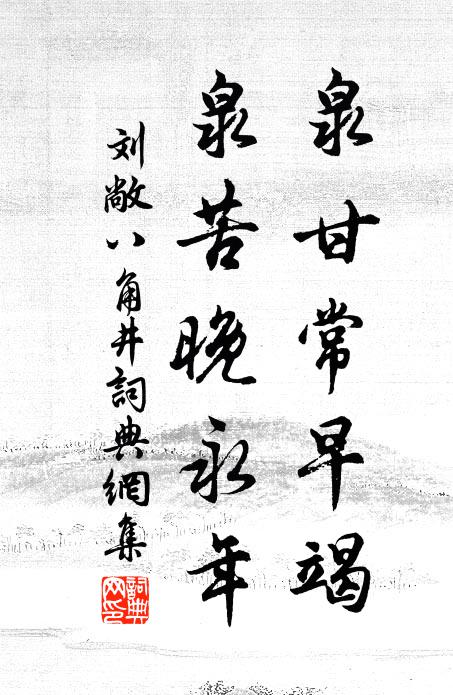 泉甘常早竭
泉苦晚永年
刘敞八角井詞典網集
詞典网印